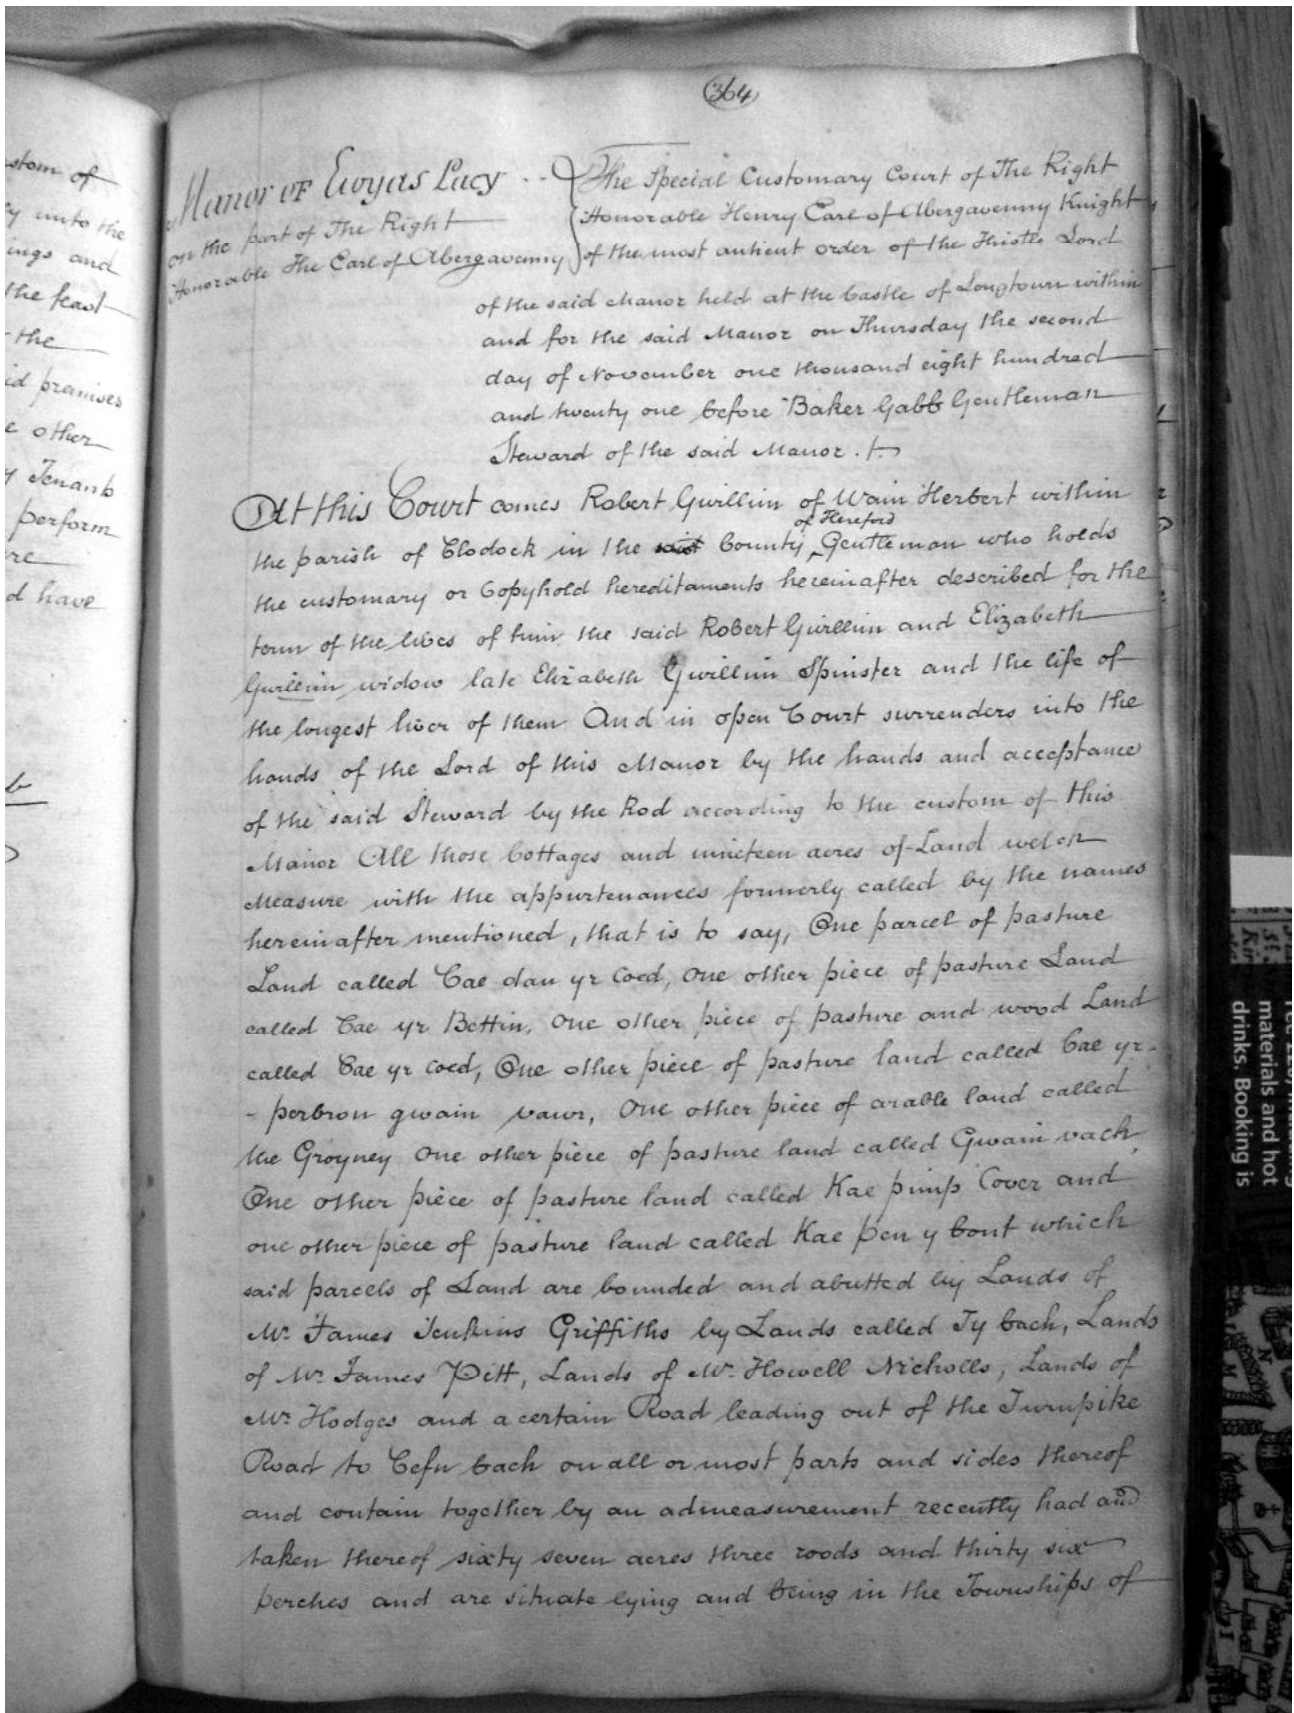 stom of
ly unto the
ings and
the feast
the
id premises
e other
y Tenants
perform
re
d have
364
Manor of Ewyas Lacy
on the part of The Right
Honorable The Earl of Abergavenny
The Special Customary Court of The Right
Honorable Henry Earl of Abergavenny Knight
of the most antient order of the Thistle Lord
of the said Manor held at the Castle of Longtown within
and for the said Manor on Thursday the second
day of November one thousand eight hundred
and twenty one before Baker Gabb Gentleman
Steward of the said Manor.
At this Court comes Robert Gwillim of Wain Herbert within
of Hereford
the parish of Clodock in the said County Gentleman who holds
the customary or Copyhold hereditaments hereinafter described for the
term of the lives of him the said Robert Gwillim and Elizabeth
Gwillim widow late Elizabeth Gwillim Spinster and the life of
the longest liver of them And in open Court surrenders into the
hands of the Lord of this Manor by the hands and acceptance
of the said Steward by the Rod according to the custom of this
Manor All those Cottages and nineteen acres of Land welch
Measure with the appurtenances formerly called by the names
hereinafter mentioned, that is to say, One parcel of pasture
Land called Cae dan yr Coed, One other piece of pasture Land
called Cae yr Bettin, One other piece of pasture and wood Land
called Cae yr Coed, One other piece of pasture land called Cae yr-
- perbron gwain vawr, One other piece of arable land called
the Groyney One other piece of pasture land called Gwain vach
One other piece of pasture land called Kae pimp Cover and
one other piece of pasture land called Kae pen y bont which
said parcels of Land are bounded and abutted by Lands of
Mr. James Jenkins Griffiths by Lands called Ty bach, Lands
of Mr. James Pitt, Lands of Mr. Howell Nicholls, Lands of
Mr. Hodges and a certain Road leading out of the Turnpike
Road to Cefn bach on all or most parts and sides thereof
and contain together by an admeasurement recently had and
taken thereof sixty seven acres three roods and thirty six
perches and are situate lying and being in the Townships of
materials and hot
drinks. Booking is